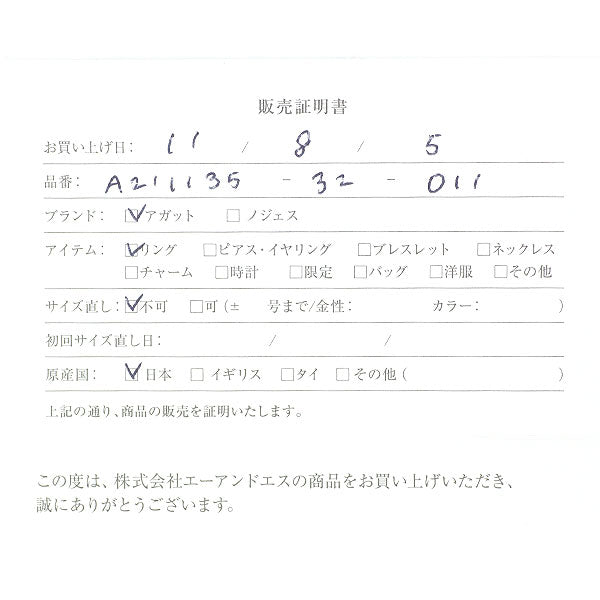 販売証明書
お買い上げ日: 11 / 8 / 5
品番: A211135 - 32 - 011
ブランド: ☑アガット □ノジェス
アイテム: ☑リング □ピアス・イヤリング □ブレスレット □ネックレス
□チャーム □時計 □限定 □バッグ □洋服 □その他
サイズ直し: ☑不可 □可(± 号まで/金性: カラー: )
初回サイズ直し日: / /
原産国: ☑日本 □イギリス □タイ □その他( )
上記の通り、商品の販売を証明いたします。
この度は、株式会社エーアンドエスの商品をお買い上げいただき、
誠にありがとうございます。